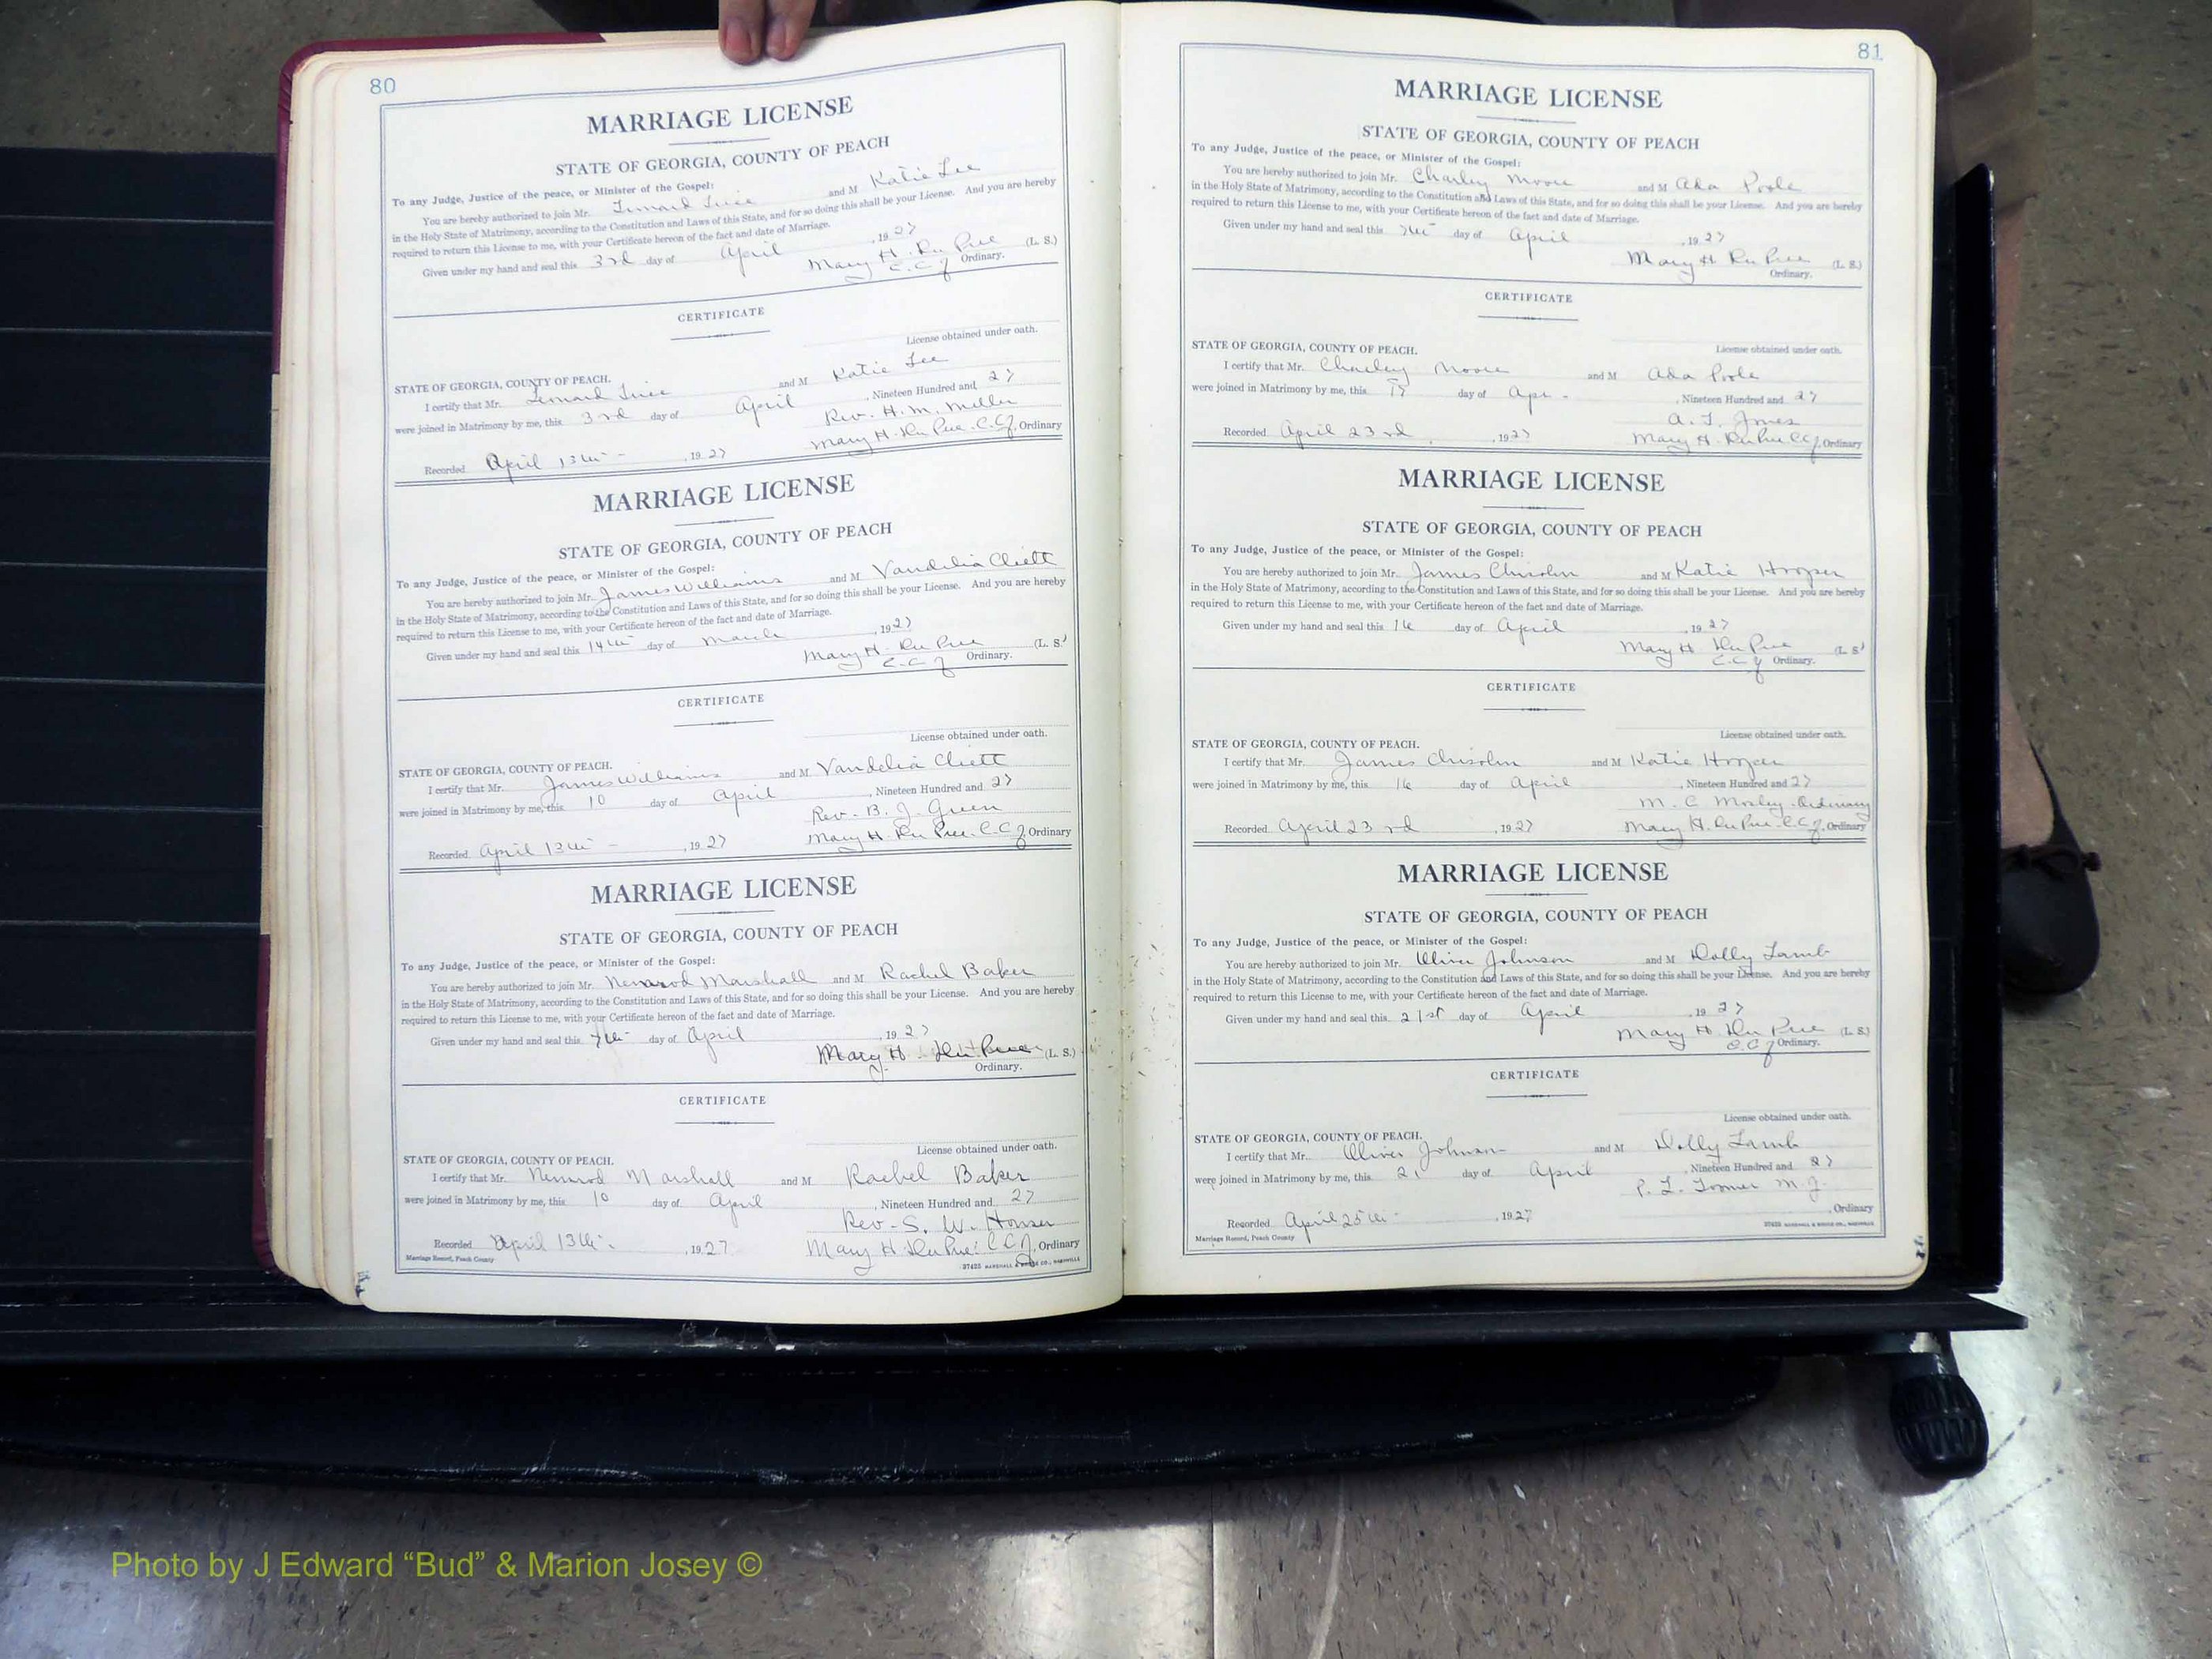 80
MARRIAGE LICENSE
STATE OF GEORGIA, COUNTY OF PEACH
To any Judge, Justice of the peace, or Minister of the Gospel:
You are hereby authorized to join Mr. and M Katie Lee
in the Holy State of Matrimony, according to the Constitution and Laws of this State, and for so doing this shall be your License. And you are hereby
required to return this License to me, with your Certificate hereon of the fact and date of Marriage.
Given under my hand and seal this 3rd day of April, 1927
Mary H. Du Pree (L. S.)
C.C.O Ordinary.
CERTIFICATE
License obtained under oath.
STATE OF GEORGIA, COUNTY OF PEACH.
I certify that Mr. and M Katie Lee
were joined in Matrimony by me, this 3rd day of April, Nineteen Hundred and 27
Rev. H. M. Miller
Recorded April 13th - , 1927 Mary H. Du Pree. C.C.O, Ordinary
MARRIAGE LICENSE
STATE OF GEORGIA, COUNTY OF PEACH
To any Judge, Justice of the peace, or Minister of the Gospel:
You are hereby authorized to join Mr. James Williams and M Vandelia Cliett
in the Holy State of Matrimony, according to the Constitution and Laws of this State, and for so doing this shall be your License. And you are hereby
required to return this License to me, with your Certificate hereon of the fact and date of Marriage.
Given under my hand and seal this 14th day of March, 1927
Mary H. Du Pree (L. S.)
C.C.O Ordinary.
CERTIFICATE
License obtained under oath.
STATE OF GEORGIA, COUNTY OF PEACH.
I certify that Mr. James Williams and M Vandelia Cliett
were joined in Matrimony by me, this 10 day of April, Nineteen Hundred and 27
Rev. B. J. Green
Recorded April 13th - , 1927 Mary H. Du Pree. C.C.O, Ordinary
MARRIAGE LICENSE
STATE OF GEORGIA, COUNTY OF PEACH
To any Judge, Justice of the peace, or Minister of the Gospel:
You are hereby authorized to join Mr. Nemrod Marshall and M Rachel Baker
in the Holy State of Matrimony, according to the Constitution and Laws of this State, and for so doing this shall be your License. And you are hereby
required to return this License to me, with your Certificate hereon of the fact and date of Marriage.
Given under my hand and seal this 7th day of April, 1927
Mary H. Du Pree (L. S.)
Ordinary.
CERTIFICATE
License obtained under oath.
STATE OF GEORGIA, COUNTY OF PEACH.
I certify that Mr. Nemrod Marshall and M Rachel Baker
were joined in Matrimony by me, this 10 day of April, Nineteen Hundred and 27
Rev. S. W. Houser
Recorded April 13th. , 1927 Mary H. Du Pree. C.C.O, Ordinary
Marriage Record, Peach County 37425 MARSHALL & BRUCE CO., NASHVILLE
81
MARRIAGE LICENSE
STATE OF GEORGIA, COUNTY OF PEACH
To any Judge, Justice of the peace, or Minister of the Gospel:
You are hereby authorized to join Mr. Charley Moore and M Ada Poole
in the Holy State of Matrimony, according to the Constitution and Laws of this State, and for so doing this shall be your License. And you are hereby
required to return this License to me, with your Certificate hereon of the fact and date of Marriage.
Given under my hand and seal this 7th day of April, 1927
Mary H. Du Pree (L. S.)
Ordinary.
CERTIFICATE
License obtained under oath.
STATE OF GEORGIA, COUNTY OF PEACH.
I certify that Mr. Charley Moore and M Ada Poole
were joined in Matrimony by me, this day of Apr - , Nineteen Hundred and 27
Jones
Recorded April 23rd, 1927 Mary H. Du Pree C.C.O, Ordinary
MARRIAGE LICENSE
STATE OF GEORGIA, COUNTY OF PEACH
To any Judge, Justice of the peace, or Minister of the Gospel:
You are hereby authorized to join Mr. James Chisolm and M Katie Hooper
in the Holy State of Matrimony, according to the Constitution and Laws of this State, and for so doing this shall be your License. And you are hereby
required to return this License to me, with your Certificate hereon of the fact and date of Marriage.
Given under my hand and seal this 16 day of April, 1927
Mary H Du Pree (L. S.)
C.C.O Ordinary.
CERTIFICATE
License obtained under oath.
STATE OF GEORGIA, COUNTY OF PEACH.
I certify that Mr. James Chisolm and M Katie Hooper
were joined in Matrimony by me, this 16 day of April, Nineteen Hundred and 27
M. C Mosley - Ordinary
Recorded April 23rd, 1927 Mary H. Du Pree. C.C.O, Ordinary
MARRIAGE LICENSE
STATE OF GEORGIA, COUNTY OF PEACH
To any Judge, Justice of the peace, or Minister of the Gospel:
You are hereby authorized to join Mr. Oliver Johnson and M Dolly Lamb
in the Holy State of Matrimony, according to the Constitution and Laws of this State, and for so doing this shall be your License. And you are hereby
required to return this License to me, with your Certificate hereon of the fact and date of Marriage.
Given under my hand and seal this 21st day of April, 1927
Mary H Du Pree (L. S.)
C.C.O Ordinary.
CERTIFICATE
License obtained under oath.
STATE OF GEORGIA, COUNTY OF PEACH.
I certify that Mr. Oliver Johnson and M Dolly Lamb
were joined in Matrimony by me, this 21 day of April, Nineteen Hundred and 27
, Ordinary
Recorded April 25th - , 1927
Marriage Record, Peach County 37425 MARSHALL & BRUCE CO., NASHVILLE
Photo by J Edward “Bud” & Marion Josey ©